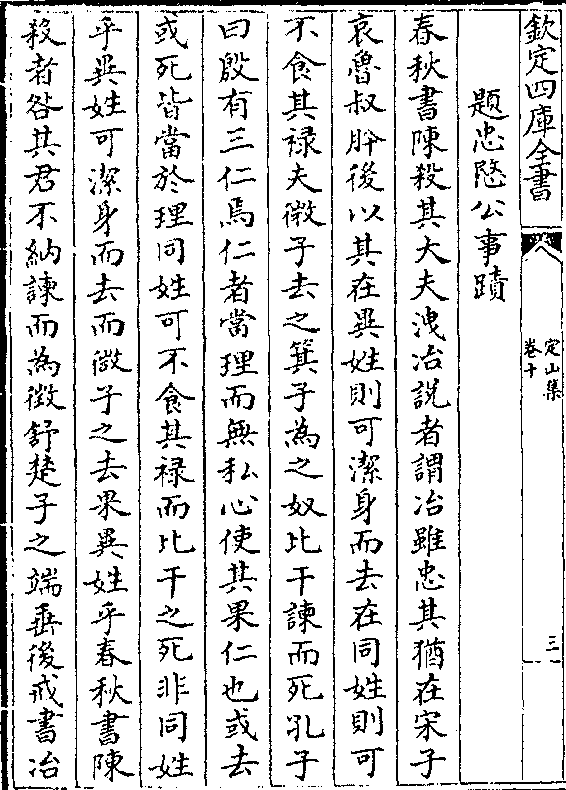 欽定四庫全書
定山集
卷十
三
題忠愍公事蹟
春秋書陳殺其大夫洩冶説者謂冶雖忠其猶在宋子
哀魯叔肸後以其在異姓則可潔身而去在同姓則可
不食其禄夫微子去之箕子為之奴比干諫而死孔子
曰殷有三仁焉仁者當理而無私心使其果仁也或去
或死皆當於理同姓可不食其禄而比干之死非同姓
乎異姓可潔身而去而微子之去果異姓乎春秋書陳
殺者咎其君不納諫而為徴舒楚子之端垂後戒書冶